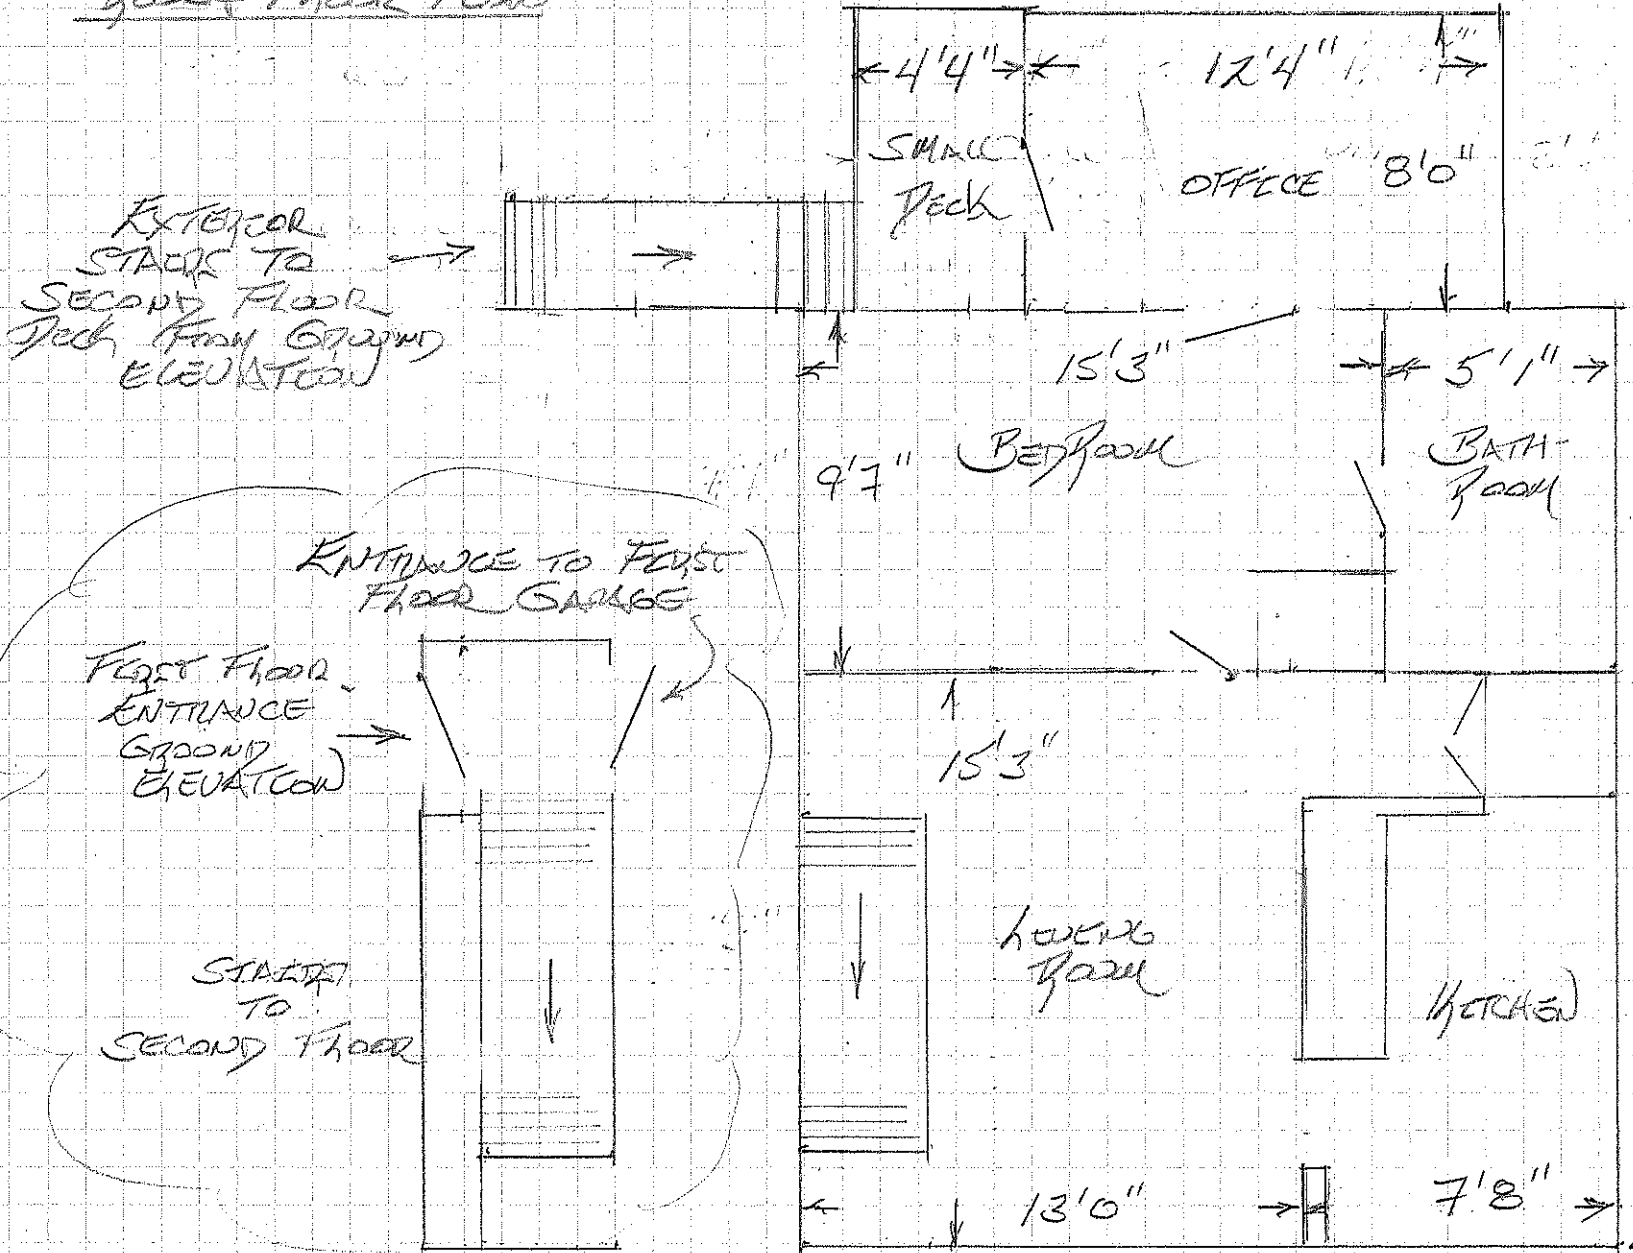 4'4"
12'4"
SMALL
DECK
OFFICE 8'0"
EXTERIOR
STAIRS TO
SECOND FLOOR
DECK FROM GROUND
ELEVATION
15'3"
5'1"
BEDROOM
BATH-
ROOM
9'7"
ENTRANCE TO FIRST
FLOOR GARAGE
FIRST FLOOR
ENTRANCE
GROUND
ELEVATION
15'3"
LIVING
ROOM
KITCHEN
STAIRS
TO
SECOND FLOOR
13'0"
7'8"